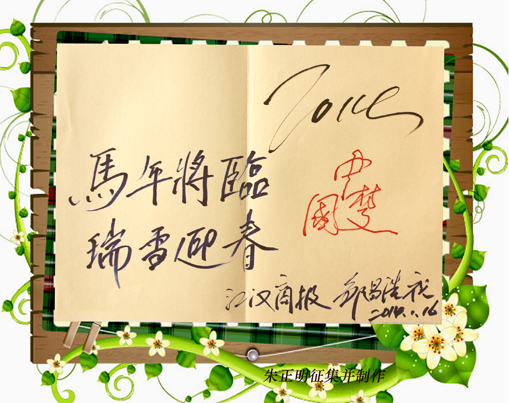 2014
馬年將臨
瑞雪迎春
中
国梦
江汉商报
2014.1.16
朱正明征集并制作